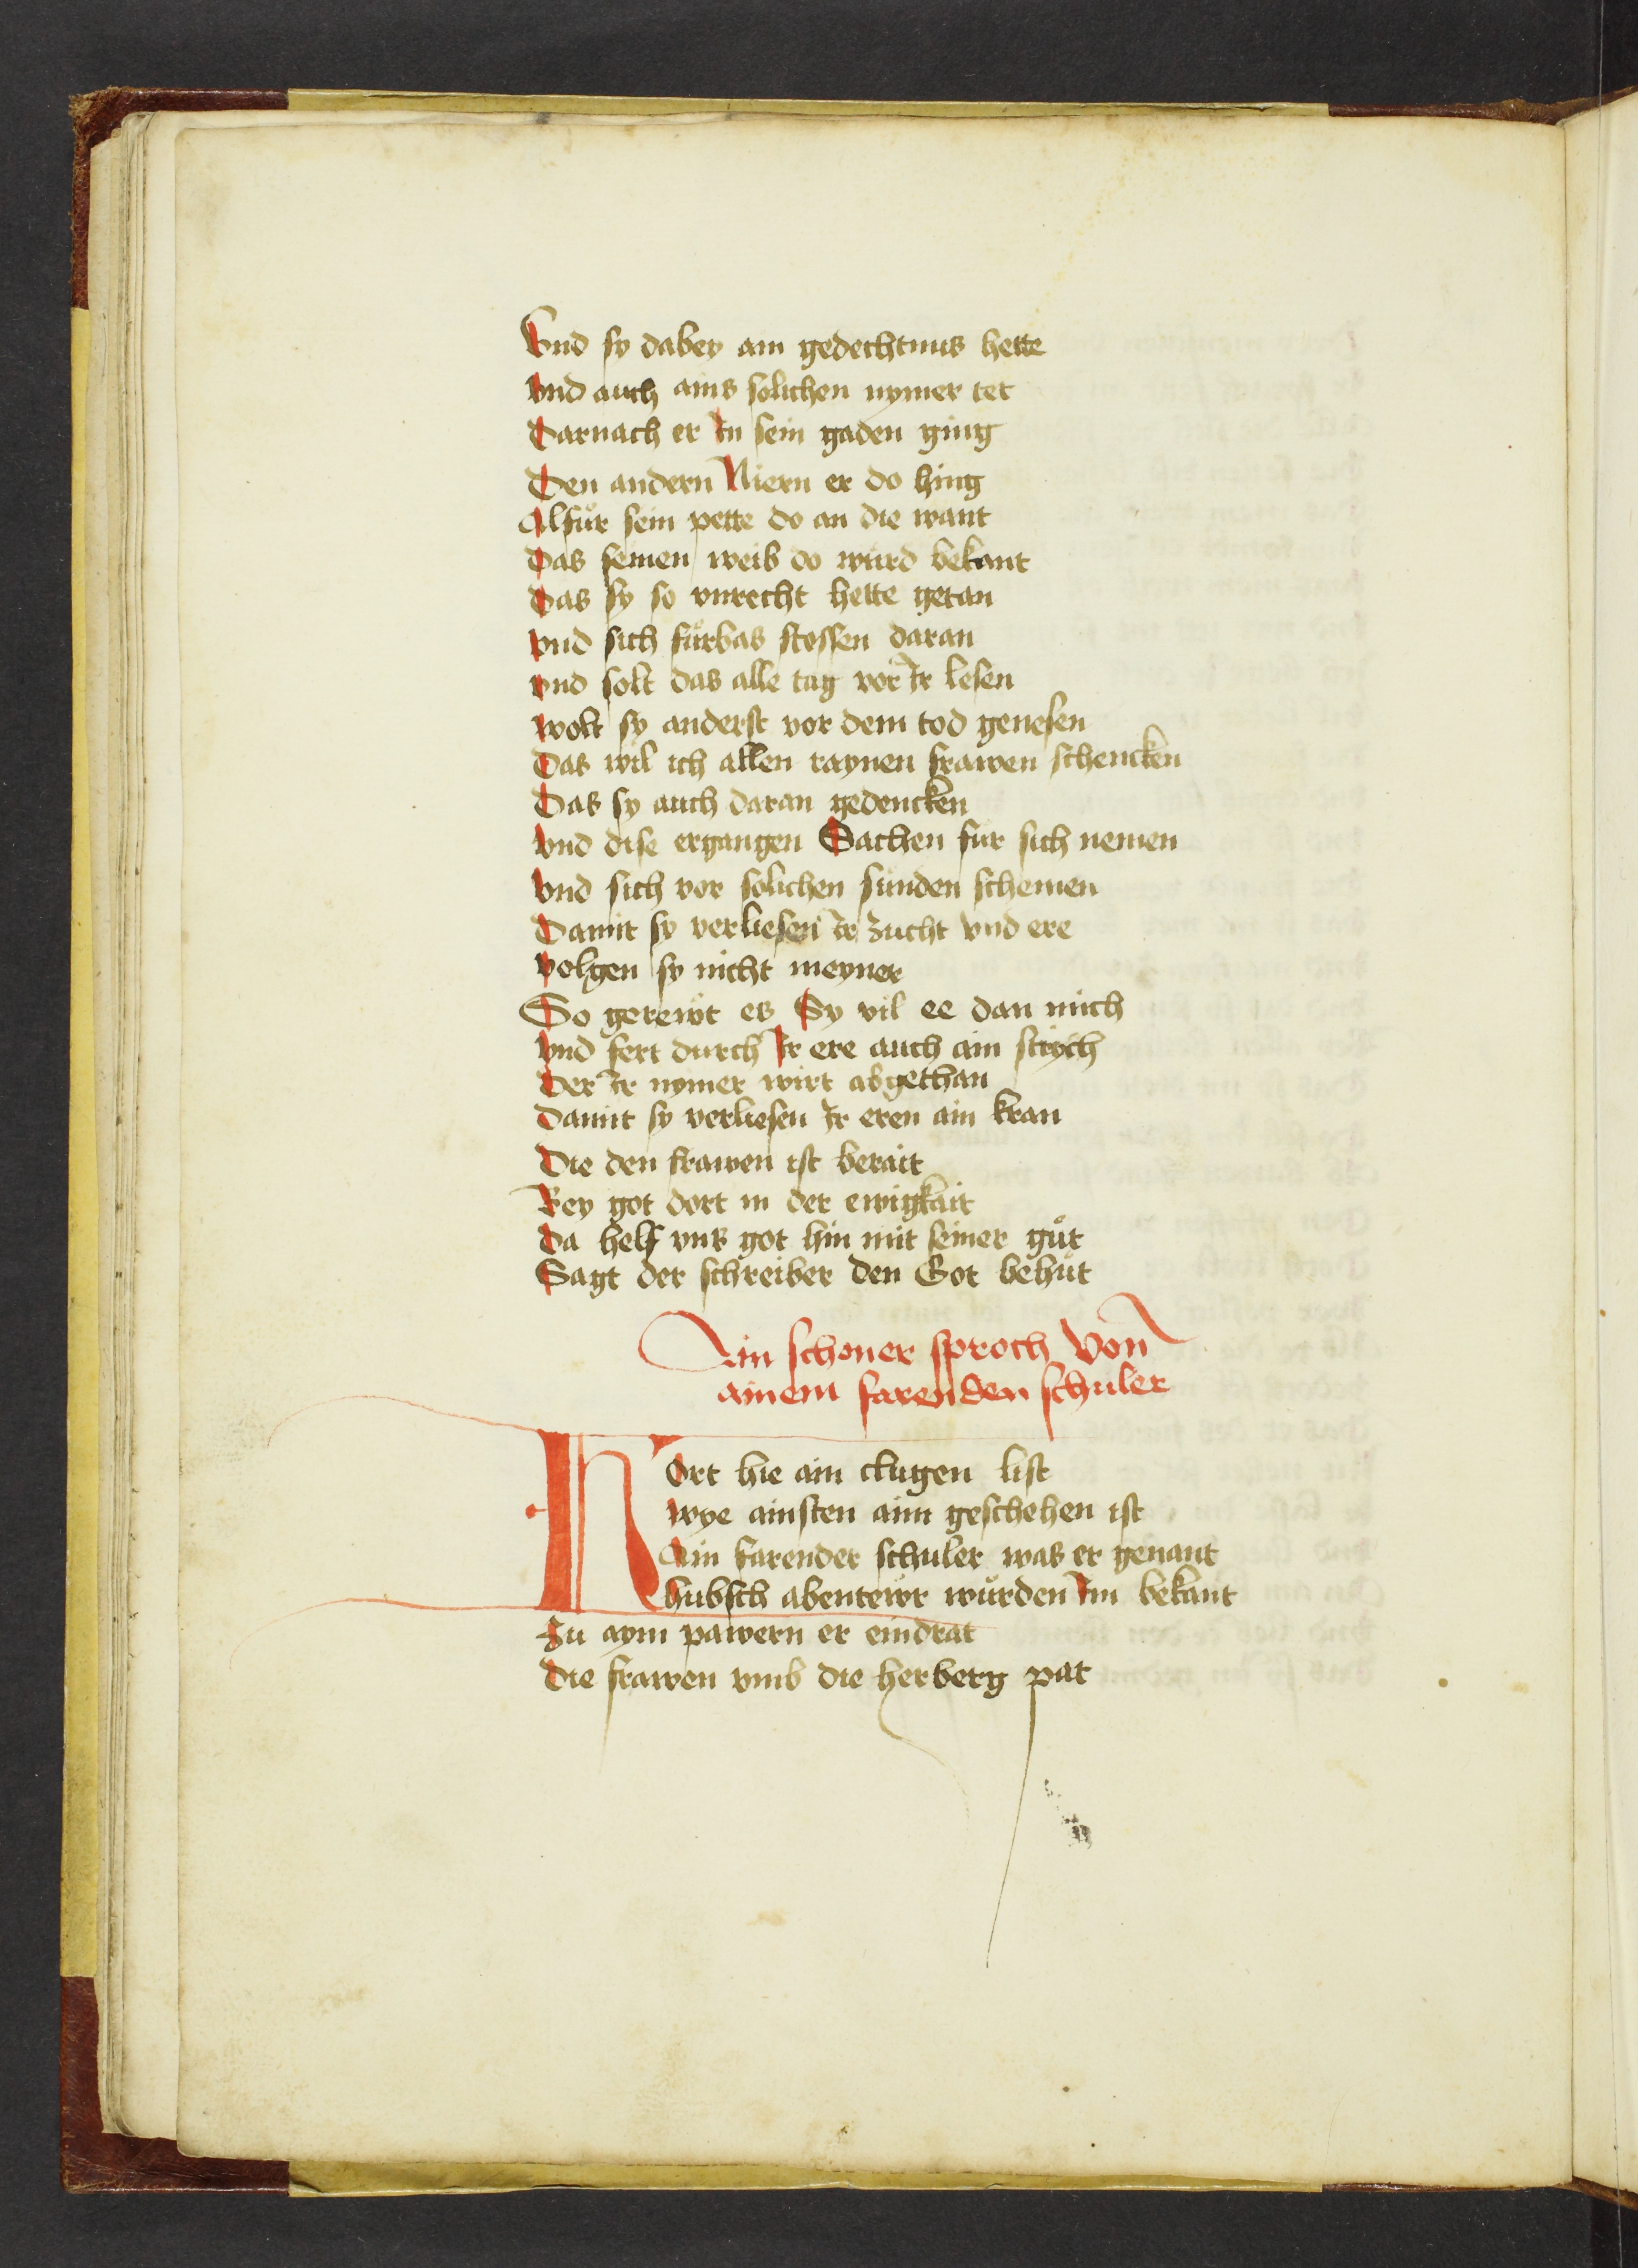 Vnd sy dabey ain gedechtnus hette
vnd auch ains solichen nymer tet
Darnach er In sein gaden ging
Den andern Niern er do hing
Alfür sein pette do an die want
Das seinen weib do wurd bekant
Das sy so vnrecht hette getan
vnd sich fürbas stossen daran
vnd solt das alle tag vor Ir lesen
wolt sy anderst vor dem tod genesen
Das wil ich allen raynen frawen schencken
Das sy auch daran gedencken
vnd dise ergangen Sachen für sich nemen
vnd sich vor solichen sünden schemen
Damit sy verliesen Ir zucht vnd ere
volgen sy nicht meyner
So gerewt es Sy vil ee dan mich
vnd fert durch Ir ere auch ain strych
Der Ir nymer wirt abgethan
damit sy verliesen Ir eren ain kran
Die den frawen ist berait
Bey got dort in der ewigkait
Da helf vns got hin mit seiner güt
Sagt der schreiber den Got behüt
Ain schoner sproch von
ainem farenden schuler
Hort hie ain clugen list
wye ainsten aim geschehen ist
Ain farender schuler was er genant
hubsch abentewr würden Im bekant
Zu aym pawern er eindrat
die frawen vmb die herberg pat